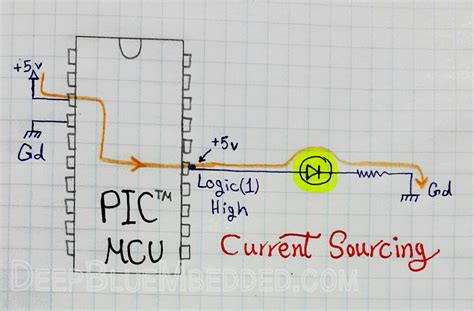 +5v
Gd
PIC™
MCU
+5v
Logic(1)
High
Gd
Current Sourcing
DeepBlueMbedded.com